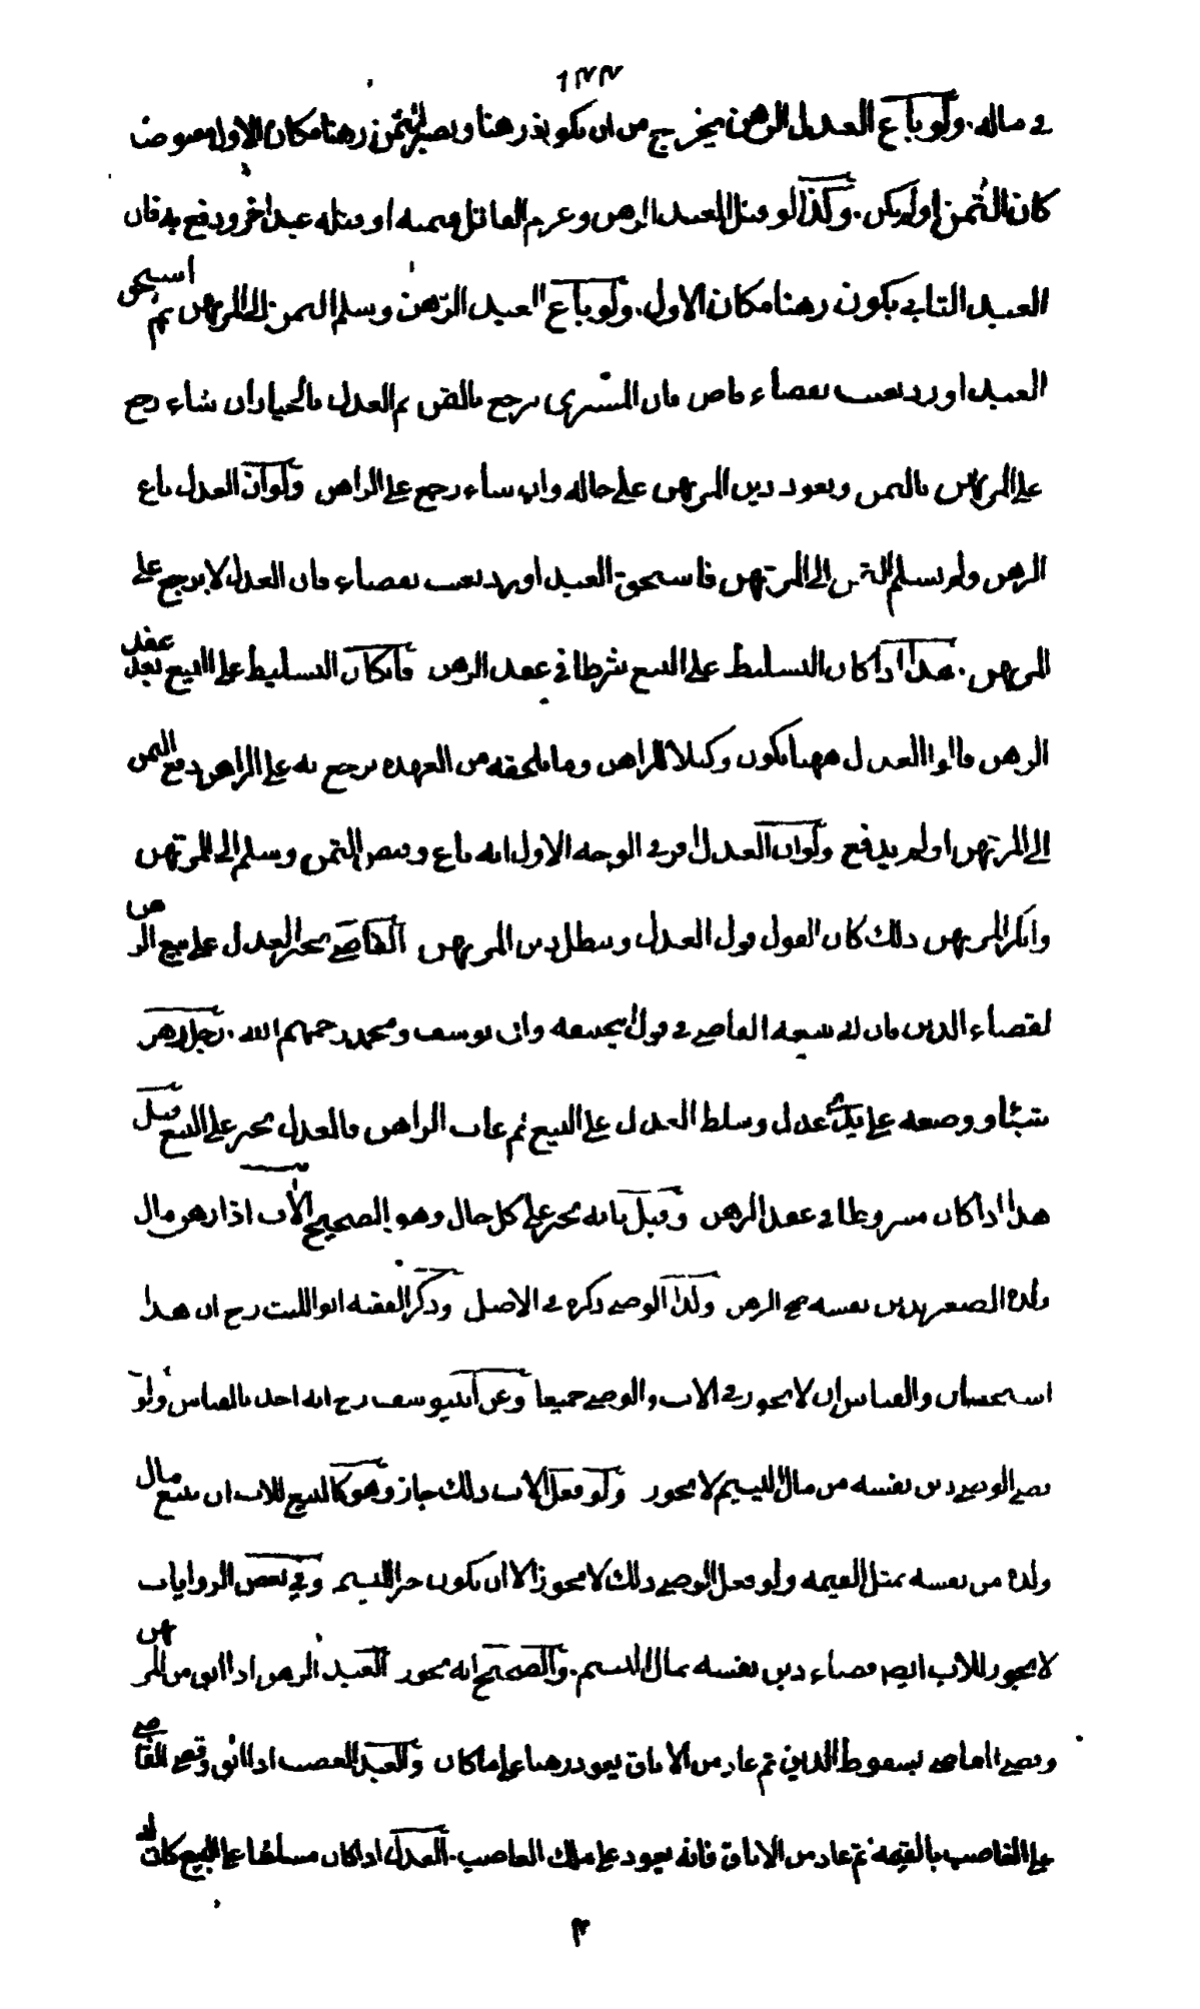 ١٢٢
في ماله. ولو باع العدل الرهن يخرج من ان يكون رهنا ويصير الثمن رهنا مكان الاول مقبوضا
كان الثمن او لم يكن. وكذا لو قتل العبد الرهن وغرم القاتل قيمته او قتله عبد اخر ودفع به فان
العبد الثاني يكون رهنا مكان الاول. ولو باع العبد الرهن وسلم الثمن الى المرتهن ثم استحق
العبد او رد بعيب بقضاء قاض فان المشتري يرجع بالثمن ثم العدل بالخيار ان شاء رجع
على المرتهن بالثمن ويعود دين المرتهن على حاله وان شاء رجع على الراهن ولو ان العدل باع
الرهن ولم يسلم الثمن الى المرتهن فاستحق العبد او رد بعيب بقضاء فان العدل لا يرجع على
المرتهن. هذا اذا كان التسليط على البيع شرطا في عقد الرهن فان كان التسليط على البيع بعد عقد
الرهن قالوا العدل ههنا يكون وكيلا للراهن وما يلحقه من العهدة يرجع به على الراهن دفع الثمن
الى المرتهن او لم يدفع ولو ان العدل اقر في الوجه الاول انه باع وقبض الثمن وسلم الى المرتهن
وانكر المرتهن ذلك كان القول قول العدل وبطل دين المرتهن القاضي يجبر العدل على بيع الرهن
لقضاء الدين فان لم يبعه القاضي في قول ابي حنيفة وابي يوسف ومحمد رحمهم الله. رجل رهن
شيئا ووضعه على يدي عدل وسلط العدل على البيع ثم غاب الراهن فالعدل يجبر على البيع قيل
هذا اذا كان مشروطا في عقد الرهن وقيل بانه يجبر على كل حال وهو الصحيح الاب اذا رهن مال
ولده الصغير بدين نفسه صح الرهن وكذا الوصي ذكره في الاصل وذكر الفقيه ابو الليث رح ان هذا
استحسان والقياس ان لا يجوز في الاب والوصي جميعا وعن ابي يوسف رح انه اخذ بالقياس ولو
قضى الوصي دين نفسه من مال اليتيم لا يجوز ولو فعل الاب ذلك جاز وهو كالبيع للاب ان يبيع مال
ولده من نفسه بمثل القيمة ولو فعل الوصي ذلك لا يجوز الا ان يكون خيرا لليتيم وفي بعض الروايات
لا يجوز للاب ايضا قضاء دين نفسه بمال اليتيم. والصحيح انه يجوز العبد الرهن اذا ابق من المرتهن
وقضى القاضي بسقوط الدين ثم عاد من الاباق يعود رهنا على ما كان والعبد الغصب اذا ابق وقضى القاضي
على الغاصب بالقيمة ثم عاد من الاباق فانه يعود على ملك الغاصب. العدل اذا كان مسلطا على البيع كان له